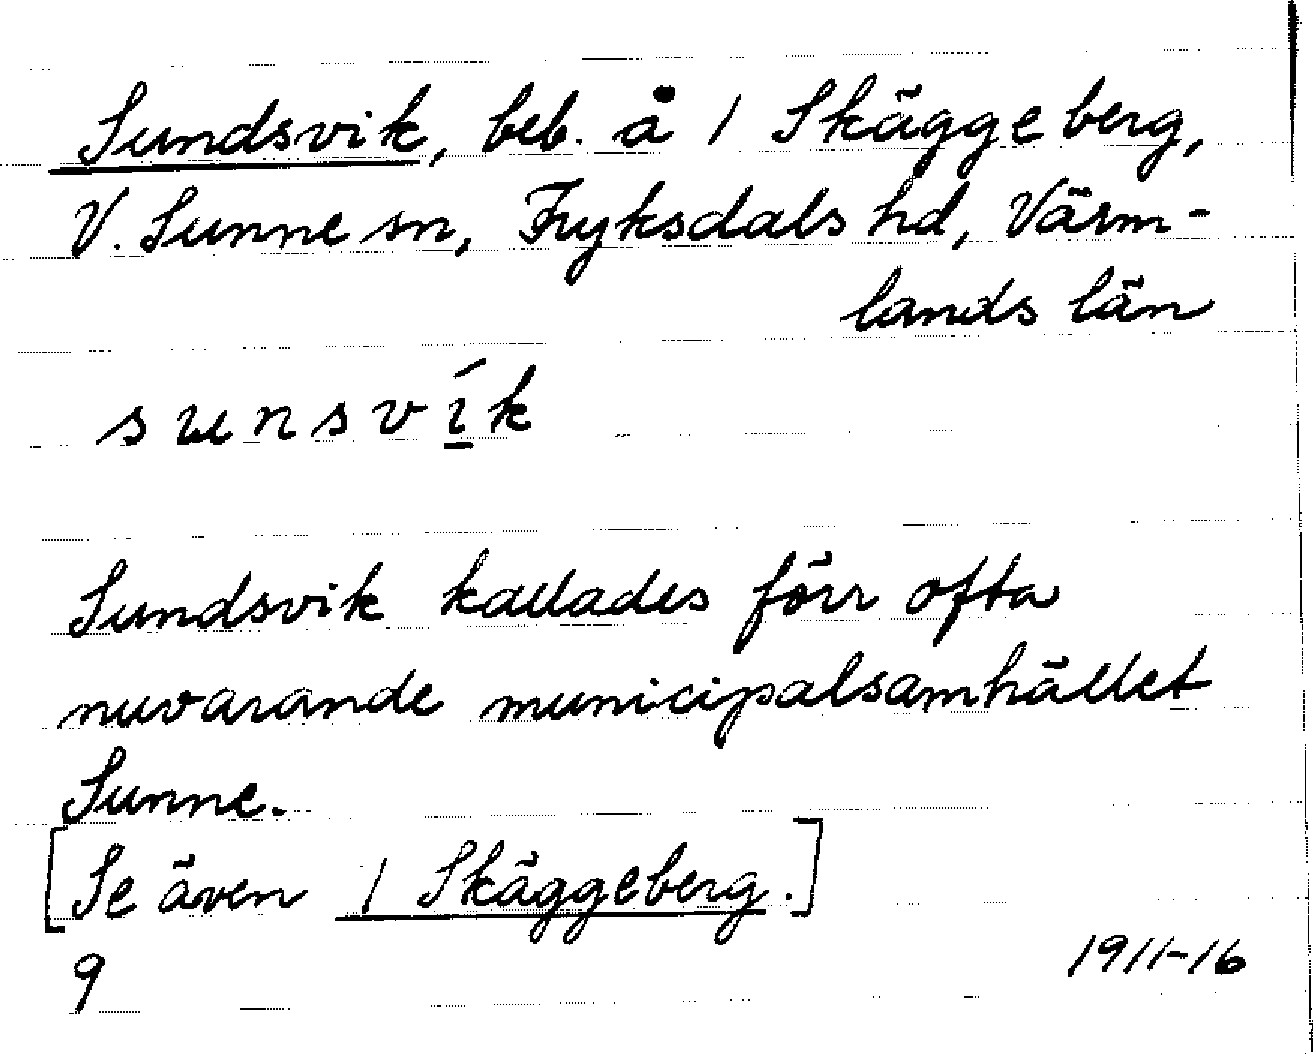 Sundsvik, beb. å 1 Skäggeberg,
V. Sunne sn, Fryksdals hd, Värm-
lands län
sunsvík
Sundsvik kallades förr ofta
nuvarande municipalsamhället
Sunne.
[Se även 1 Skäggeberg.]
9
1911-16